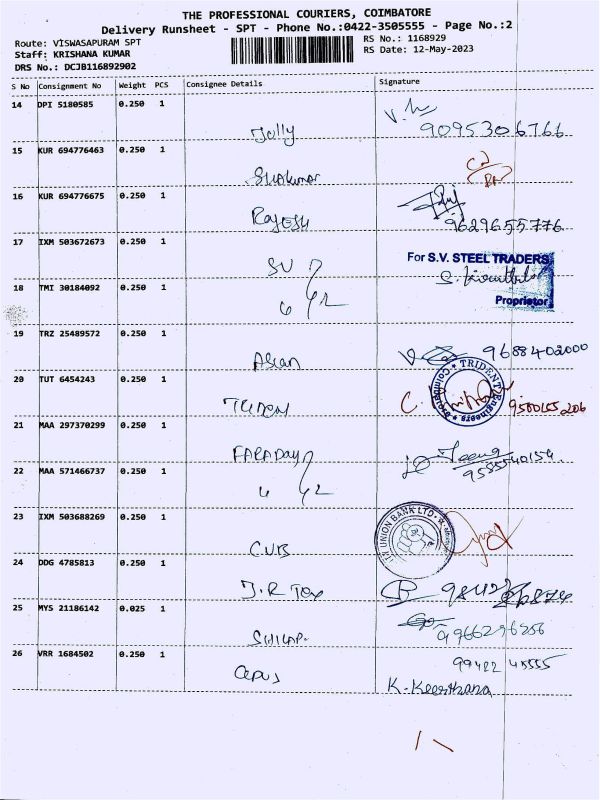 THE PROFESSIONAL COURIERS, COIMBATORE
Delivery Runsheet - SPT - Phone No.:0422-3505555 - Page No.:2
Route: VISWASAPURAM SPT
Staff: KRISHANA KUMAR
DRS No.: DCJB116892902
RS No.: 1168929
RS Date: 12-May-2023
S No Consignment No Weight PCS Consignee Details Signature
14 DPI 5180585 0.250 1
Jolly 9095306766
15 KUR 694776463 0.250 1
Sivakumar
16 KUR 694776675 0.250 1
Rajesh 9629655776
17 IXM 503672673 0.250 1
SV
For S.V. STEEL TRADERS
Proprietor
18 TMI 30184092 0.250 1
19 TRZ 25489572 0.250 1
Asian 9688402000
20 TUT 6454243 0.250 1
TRIDENT Engineers Coimbatore
21 MAA 297370299 0.250 1
FARADAY
22 MAA 571466737 0.250 1
9585540154
23 IXM 503688269 0.250 1
CUB
CITY UNION BANK LTD.
24 DDG 4785813 0.250 1
J.R Tex
25 MYS 21186142 0.025 1
9966296256
26 VRR 1684502 0.250 1
99422 45555
K. Keerthana